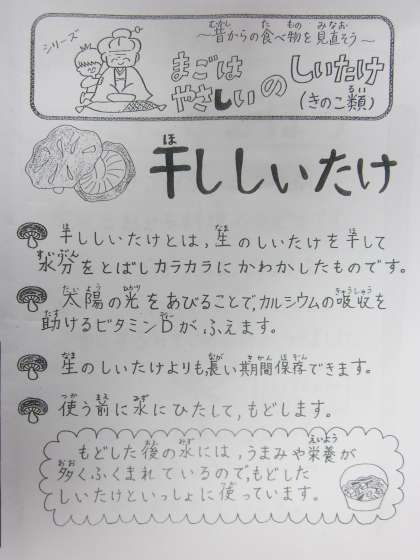 シリーズ
〜昔からの食べ物を見直そう〜
まごは
やさしいの
しいたけ
(きのこ類)
干ししいたけ
干ししいたけとは,生のしいたけを干して
水分をとばしカラカラにかわかしたものです。
太陽の光をあびることで,カルシウムの吸収を
助けるビタミンDが,ふえます。
生のしいたけよりも,長い期間保存できます。
使う前に水にひたして,もどします。
もどした後の水には,うまみや栄養が
多くふくまれているので,もどした
しいたけといっしょに使っています。